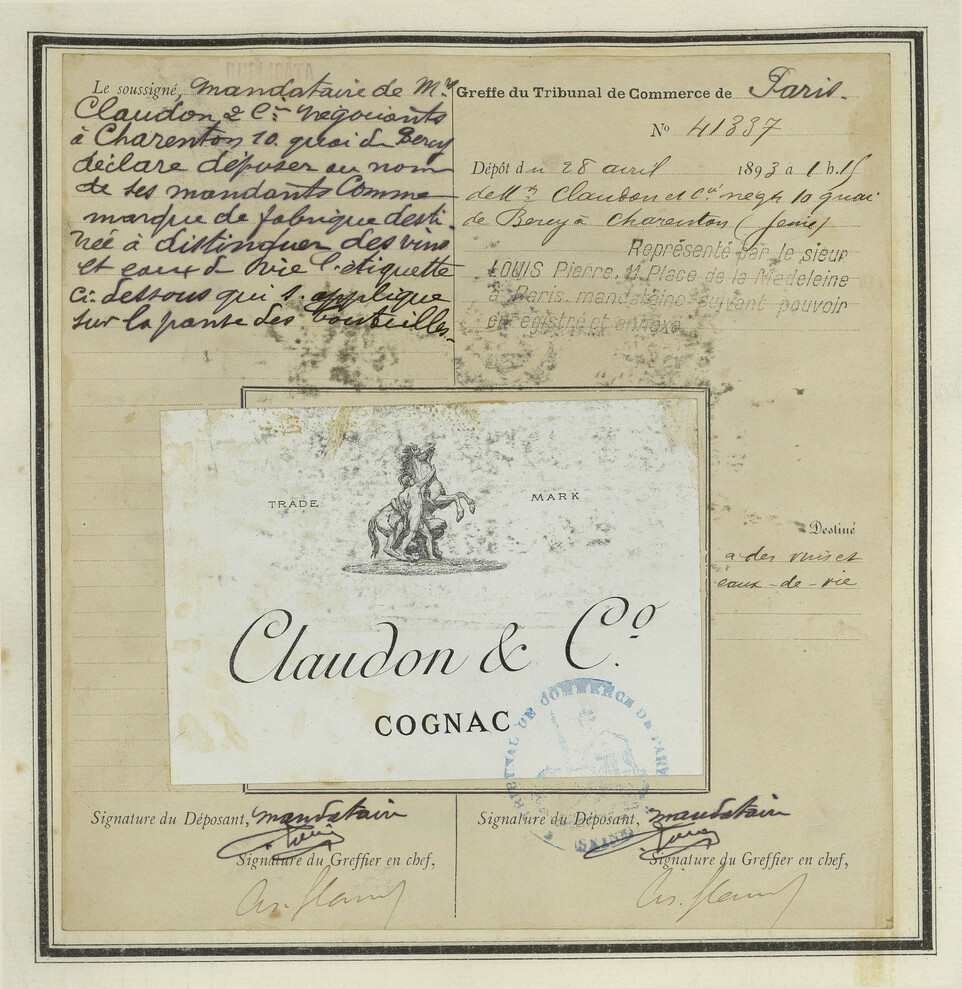 Le soussigné, mandataire de Mrs
Claudon & Cie négociants
à Charenton 10. quai de Bercy
déclare déposer au nom
de ses mandants Comme
marque de fabrique desti-
née à distinguer des vins
et eaux de vie l'étiquette
ci-dessous qui s'applique
sur la panse des bouteilles.
Greffe du Tribunal de Commerce de Paris.
No 41337
Dépôt du 28 avril 1893 à 1 h. 15
de Mrs Claudon et Cie negts 10 quai
de Bercy à Charenton (Seine)
Représenté par le sieur
LOUIS Pierre, 11 Place de la Madeleine
à Paris, mandataire suivant pouvoir
enregistré et annexé
TRADE MARK
Claudon & Co.
COGNAC
Destiné
a des vins et
eaux-de-vie
TRIBUNAL DE COMMERCE DE PARIS
(SEINE)
Signature du Déposant, mandataire
Louis
Signature du Greffier en chef,
Signature du Déposant, mandataire
Louis
Signature du Greffier en chef,